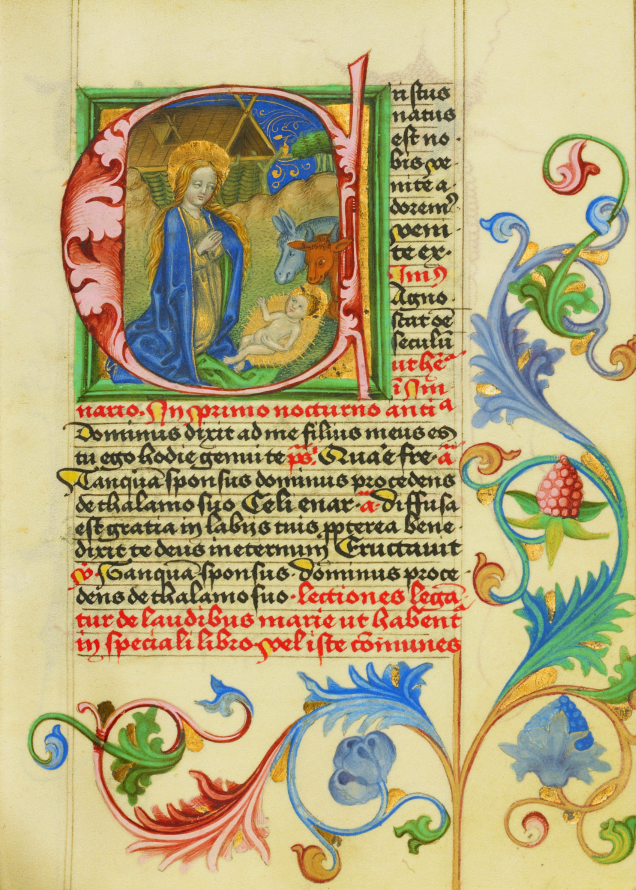 Cristus
natus
est no
bis ve
nite a
dorem9
veni
te ex.
Im9
Agno
scat oē
seculū
ut hr̄
ī Im
nario. In primo nocturno antia
Dominus dixit ad me filius meus es
tu ego hodie genui te ps. Quare fre. a
Tanquā sponsus dominus procedens
de thalamo suo Celi enar. a. diffusa
est gratia in labijs tuis ppterea bene
dixit te deus in eternum Eructauit
v. Tanquā sponsus. dominus proce
dens de thalamo suo. lectiones lega
tur de laudibus marie ut habent
in speciali libro. vel iste cōmunes